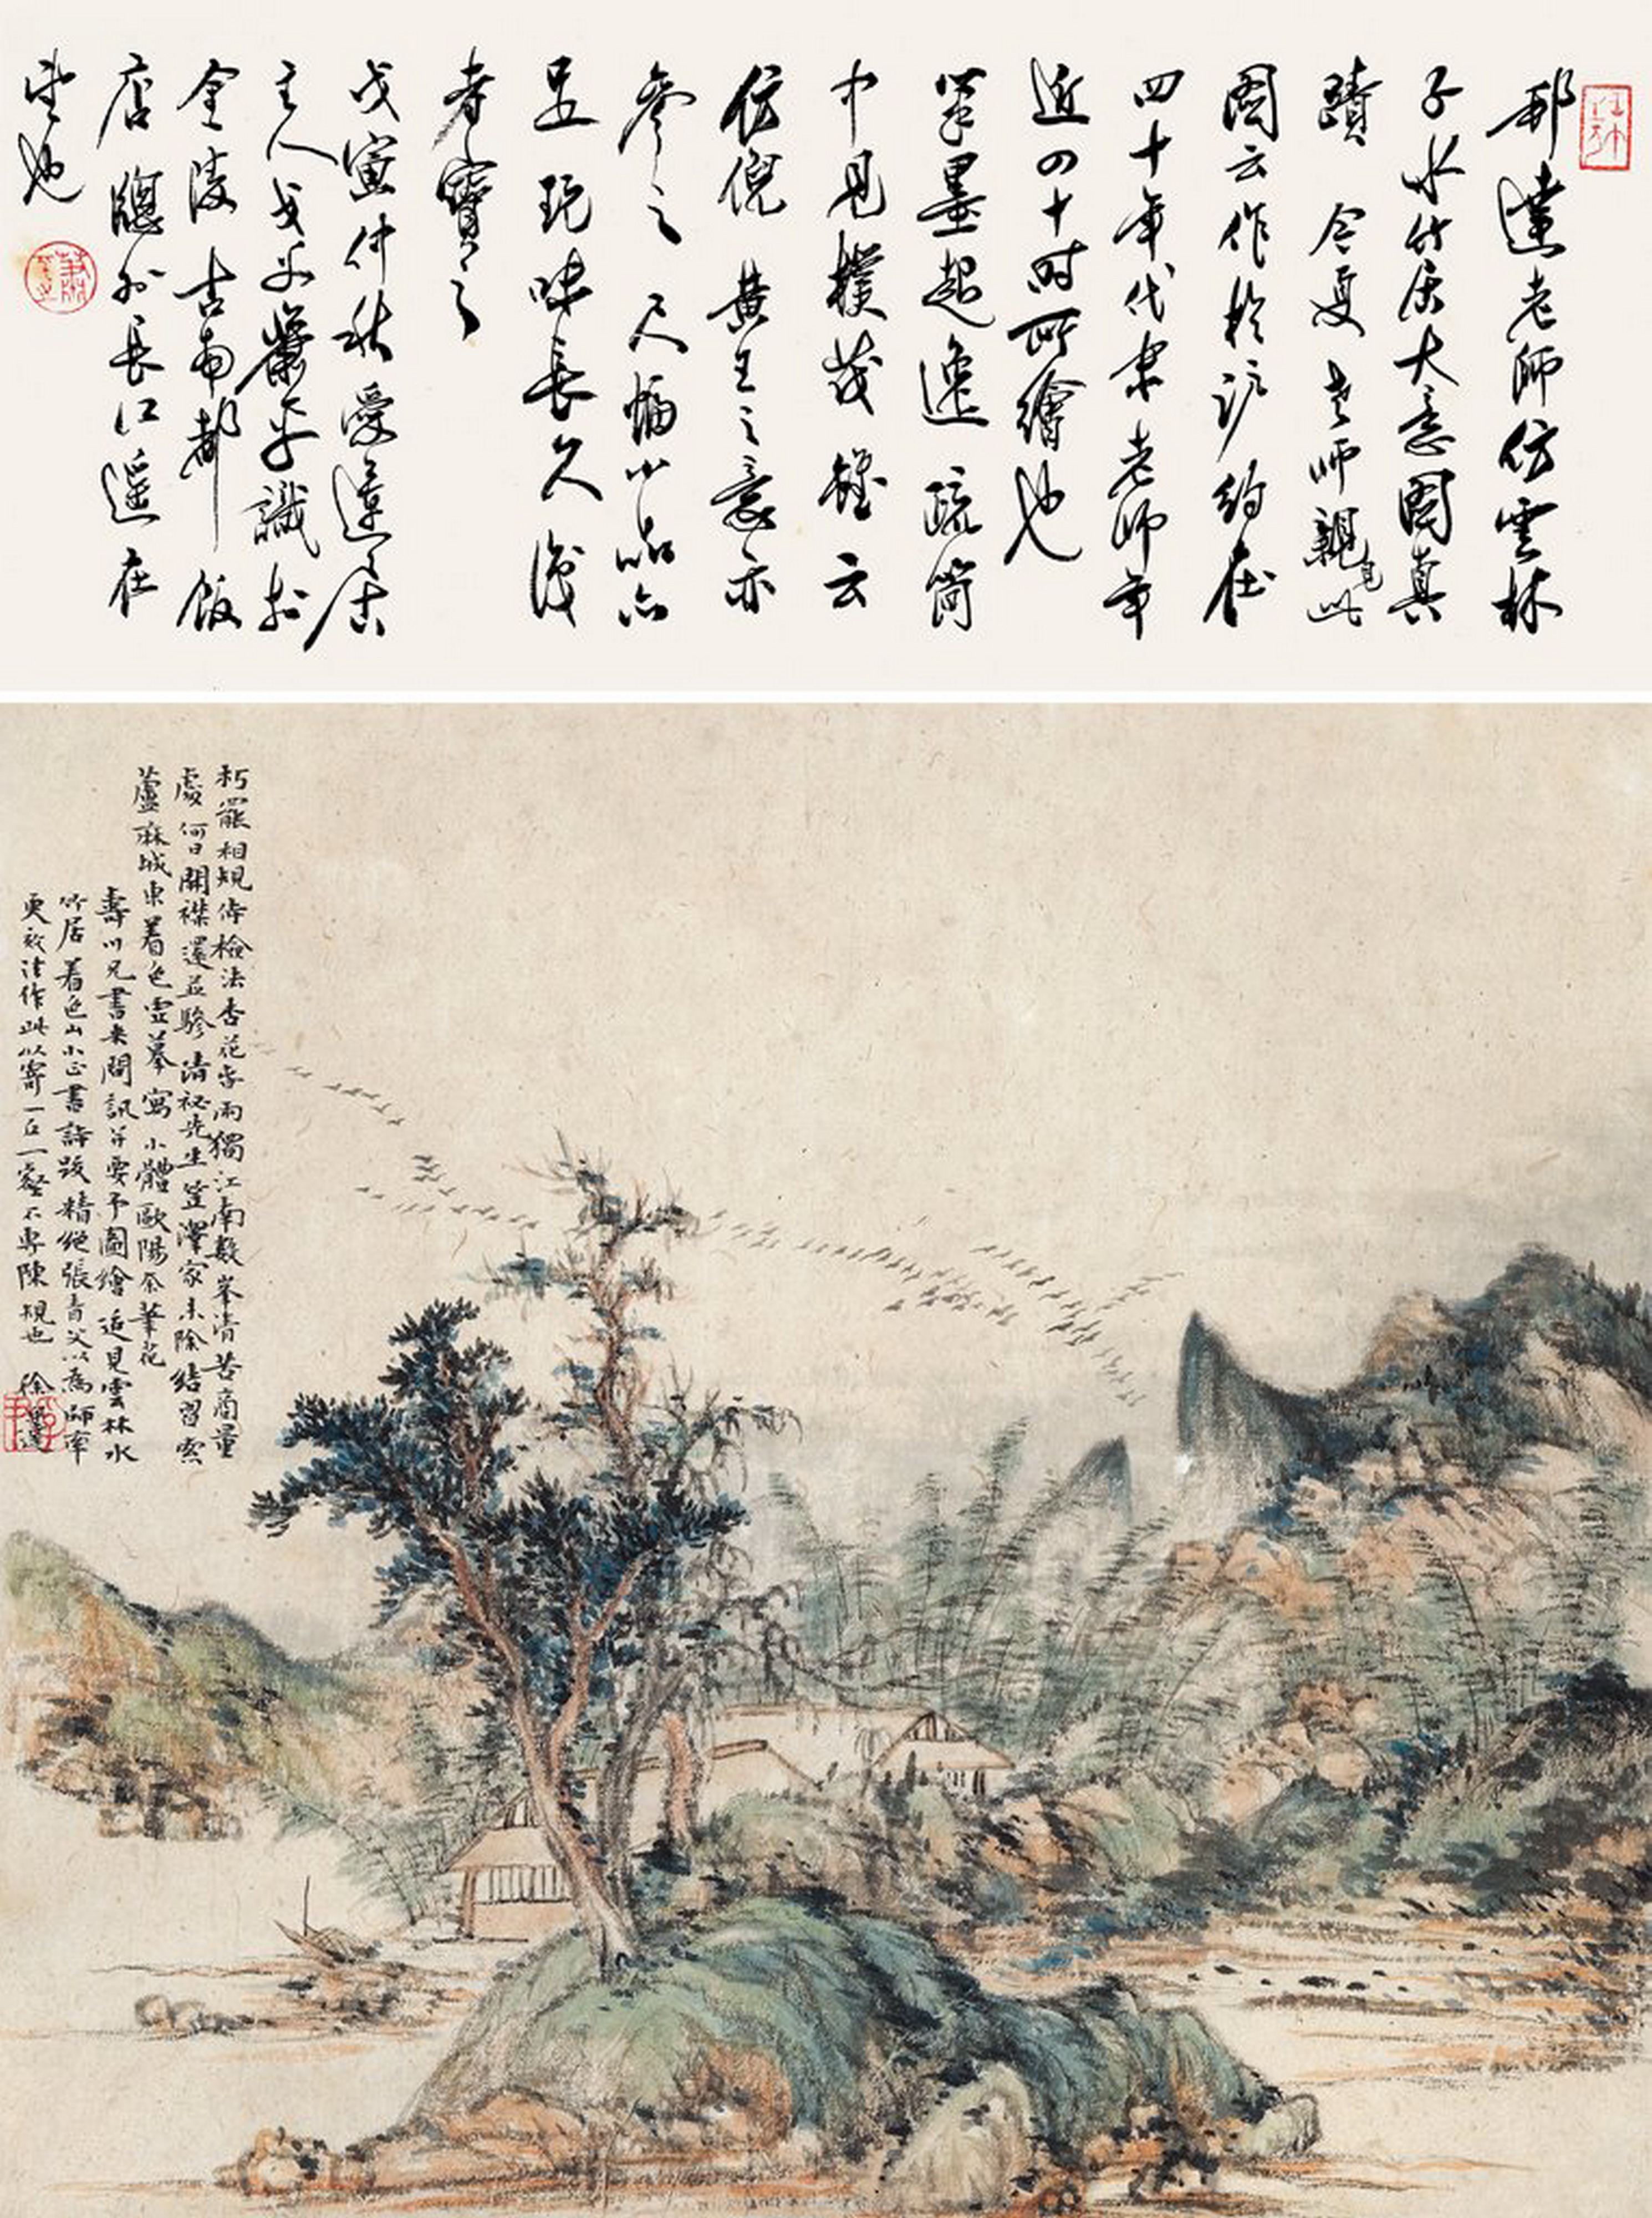 邢達老師仿雲林
子水竹居大意圖真
蹟 今夏老師親見此
圖云作於滬約在
四十年代末老師年
近四十時所繪也
筆墨超逸疏簡
中見樸茂雖云
仿倪黃王之意亦
參之尺幅小品亦
足玩味長久後
者寶之
戊寅仲秋愛蓮居
主人戈玉嚴平識於
金陵古南都飯
店牕外長江遥在
望也
朽罷相規倚檢法杏花步雨獨江南數峯清苦商量
處何日開襟還並驂清祕先生笠澤家未除結習索
蘆麻城東着色雲摹寫小體歐陽
壽川兄書來問訊并要予圖繪適見雲林水
竹居着色山小正書詩跋精絕張青父以為師率
更效法作此以寄一丘一壑不專陳規也 徐邦達